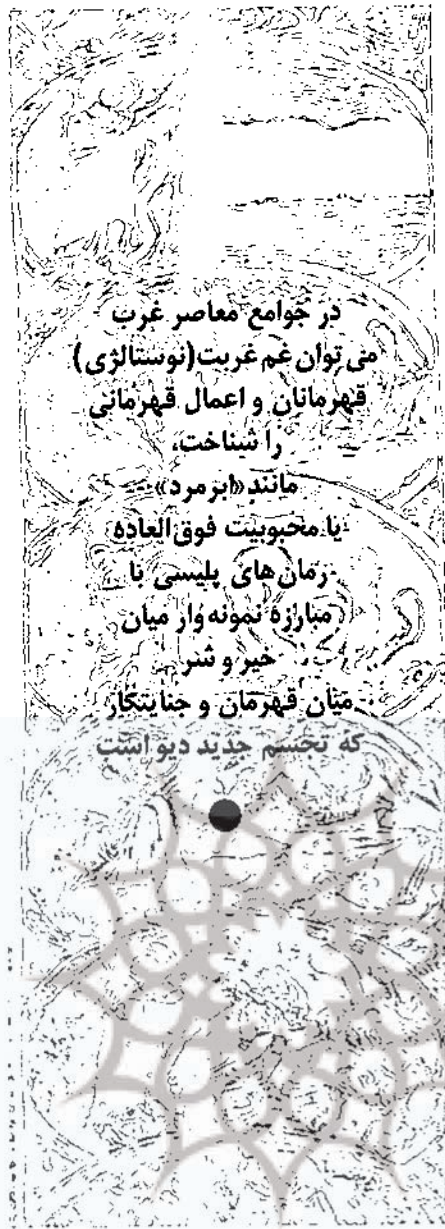 در جوامع معاصر غرب
می‌توان غم غربت(نوستالژی)
قهرمانان و اعمال قهرمانی
را شناخت،
مانند«ابرمرد»
یا محبوبیت فوق‌العاده
رمان‌های پلیسی با
مبارزهٔ نمونه‌وار میان
خیر و شر
میان قهرمان و جنایتکار
که تجسم جدید دیو است